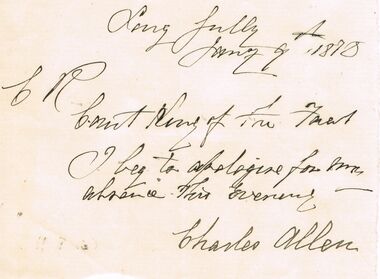 Long Gully
Jany 9th 1878
C R
Court King of the Forest
I beg to apologise for my
absence this evening
Charles Allen